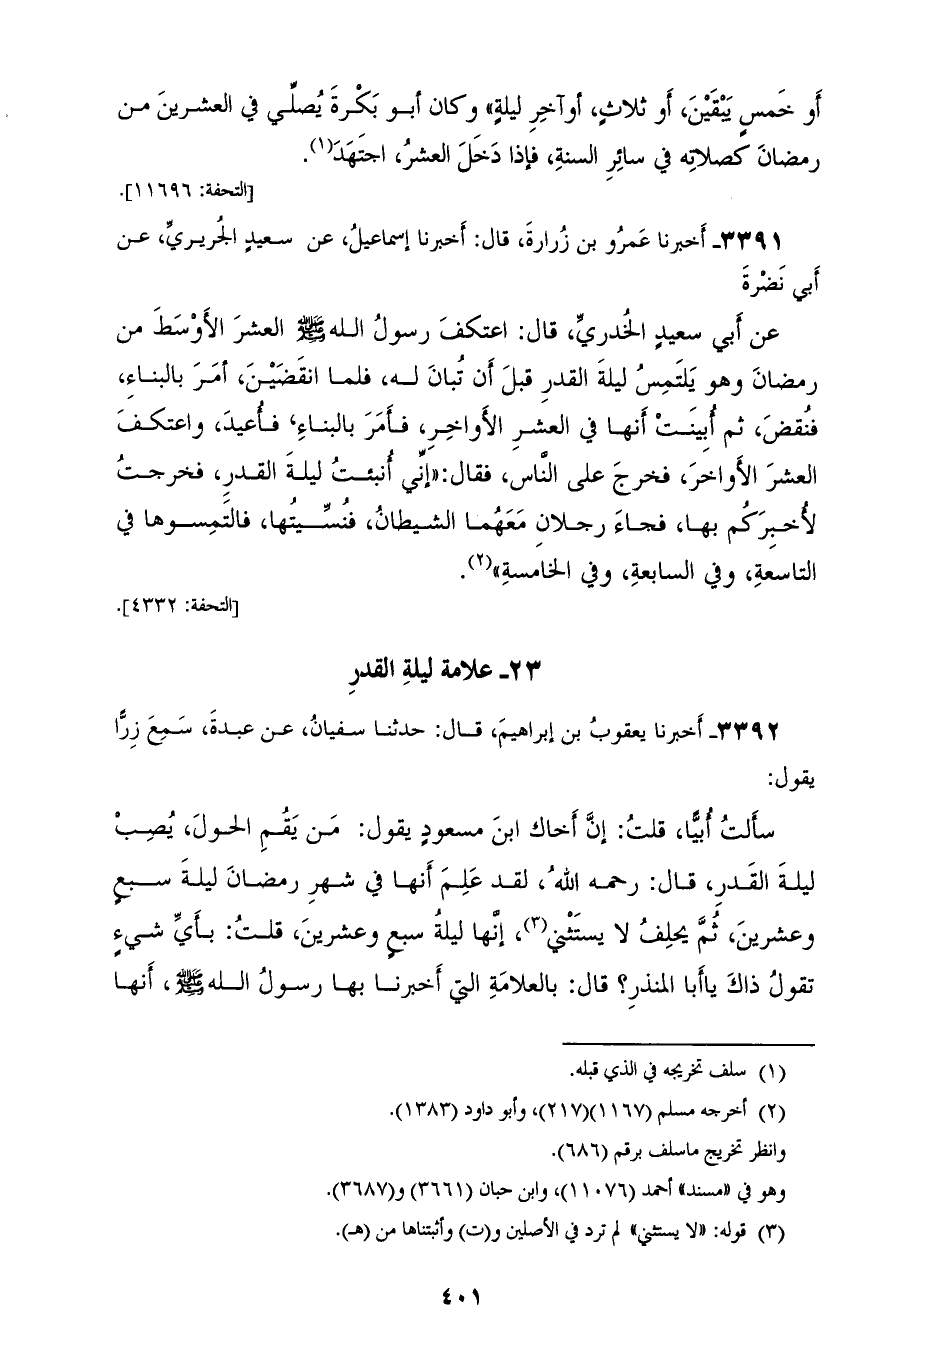 أو خَمسٍ يَبْقَيْنَ، أو ثلاثٍ، أوآخرِ ليلةٍ» وكان أبو بَكْرةَ يُصلِّي في العشرينَ من
رمضانَ كصلاتِه في سائرِ السنةِ، فإذا دَخَلَ العشرُ، اجتَهَدَ(١).
[التحفة: ١١٦٩٦].
٣٣٩١ـ أخبرنا عَمرُو بن زُرارةَ، قال: أخبرنا إسماعيلُ، عن سعيدٍ الجُريريِّ، عن
أبي نَضْرةَ
عن أبي سعيدٍ الخُدريِّ، قال: اعتكفَ رسولُ اللهﷺ العشرَ الأَوْسَطَ من
رمضانَ وهو يَلتَمِسُ ليلةَ القدرِ قبلَ أن تُبانَ له، فلما انقَضَيْنَ، أمَرَ بالبناءِ،
فنُقضَ، ثم أُبينَتْ أنها في العشرِ الأواخِرِ، فأمَرَ بالبناءِ، فأُعيدَ، واعتكفَ
العشرَ الأَواخرَ، فخرجَ على النَّاس، فقال:«إنِّي أُنبئتُ ليلةَ القدرِ، فخرجتُ
لأُخبِرَكُم بها، فجاءَ رجلانِ مَعَهُما الشيطانُ، فنُسِّيتُها، فالتَمِسوها في
التاسعةِ، وفي السابعةِ، وفي الخامسةِ»(٢).
[التحفة: ٤٣٣٢].
٢٣ـ علامة ليلةِ القدرِ
٣٣٩٢ـ أخبرنا يعقوبُ بن إبراهيمَ، قال: حدثنا سفيانُ، عن عبدةَ، سَمِعَ زِرًّا
يقول:
سألتُ أُبيًّا، قلتُ: إنَّ أخاك ابنَ مسعودٍ يقول: مَن يَقُمِ الحولَ، يُصِبْ
ليلةَ القَدرِ، قال: رحمه اللهُ، لقد عَلِمَ أنها في شهرِ رمضانَ ليلةَ سبعٍ
وعشرينَ، ثُمَّ يحلِفُ لا يستَثْني(٣)، إنَّها ليلةُ سبعٍ وعشرينَ، قلتُ: بأيِّ شيءٍ
تقولُ ذاكَ ياأبا المنذرِ؟ قال: بالعلامَةِ التي أخبرنا بها رسولُ اللهﷺ، أنها
(١) سلف تخريجه في الذي قبله.
(٢) أخرجه مسلم (١١٦٧)(٢١٧)، وأبو داود (١٣٨٣).
وانظر تخريج ماسلف برقم (٦٨٦).
وهو في «مسند» أحمد (١١٠٧٦)، وابن حبان (٣٦٦١) و(٣٦٨٧).
(٣) قوله: «لا يستثني» لم ترد في الأصلين و(ت) وأثبتناها من (هـ).
٤٠١